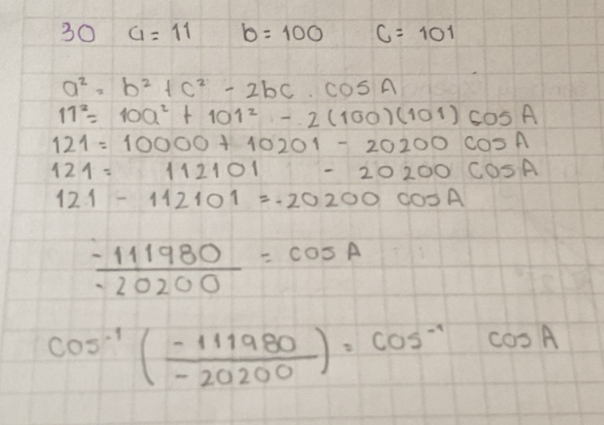 30 a = 11 b = 100 c = 101
a² = b² + c² - 2bc . cos A
11² = 100² + 101² - 2(100)(101) cos A
121 = 10000 + 10201 - 20200 cos A
121 = 112101 - 20200 cos A
121 - 112101 = -20200 cos A
-111980 = cos A
-20200
cos⁻¹ (-111980) = cos⁻¹ cos A
-20200